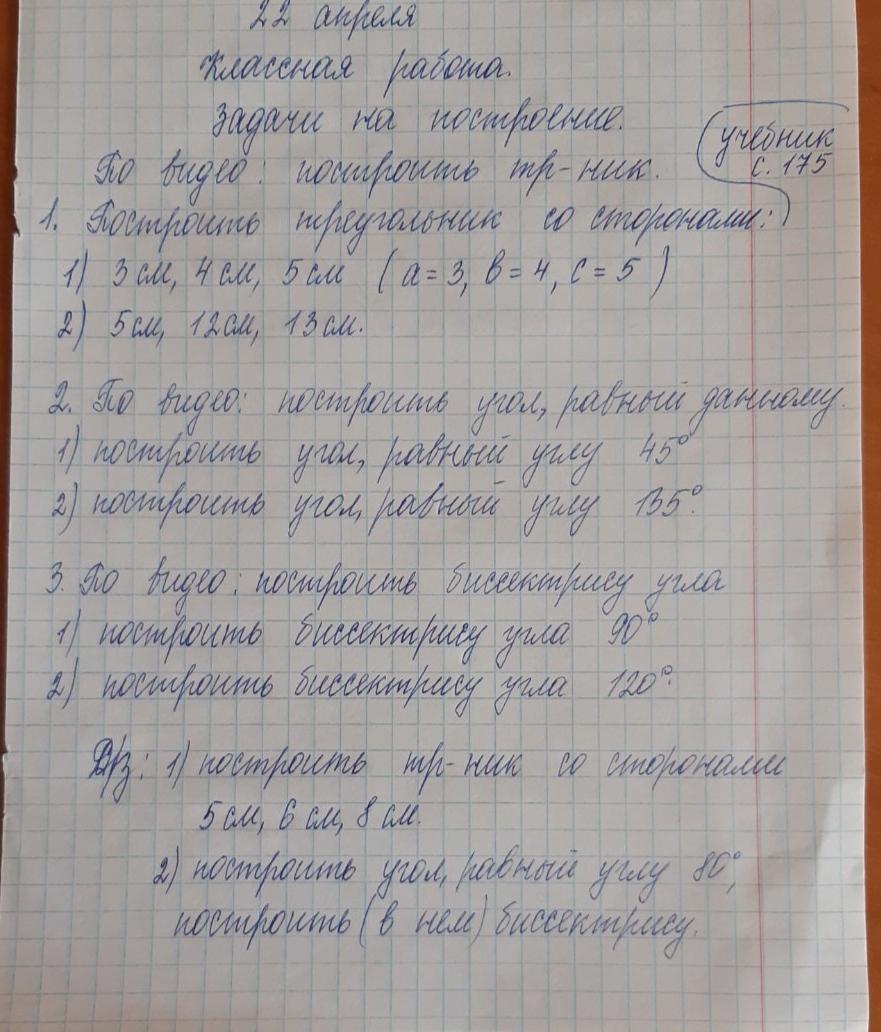 22 апреля
Классная работа.
Задачи на построение.
учебник
с. 175
По видео: построить тр-ник.
1. Построить треугольник со сторонами:
1) 3 см, 4 см, 5 см (a = 3, b = 4, c = 5)
2) 5 см, 12 см, 13 см.
2. По видео: построить угол, равный данному.
1) построить угол, равный углу 45°
2) построить угол, равный углу 135°.
3. По видео: построить биссектрису угла
1) построить биссектрису угла 90°
2) построить биссектрису угла 120°.
Д/з: 1) построить тр-ник со сторонами
5 см, 6 см, 8 см.
2) построить угол, равный углу 80°,
построить (в нем) биссектрису.